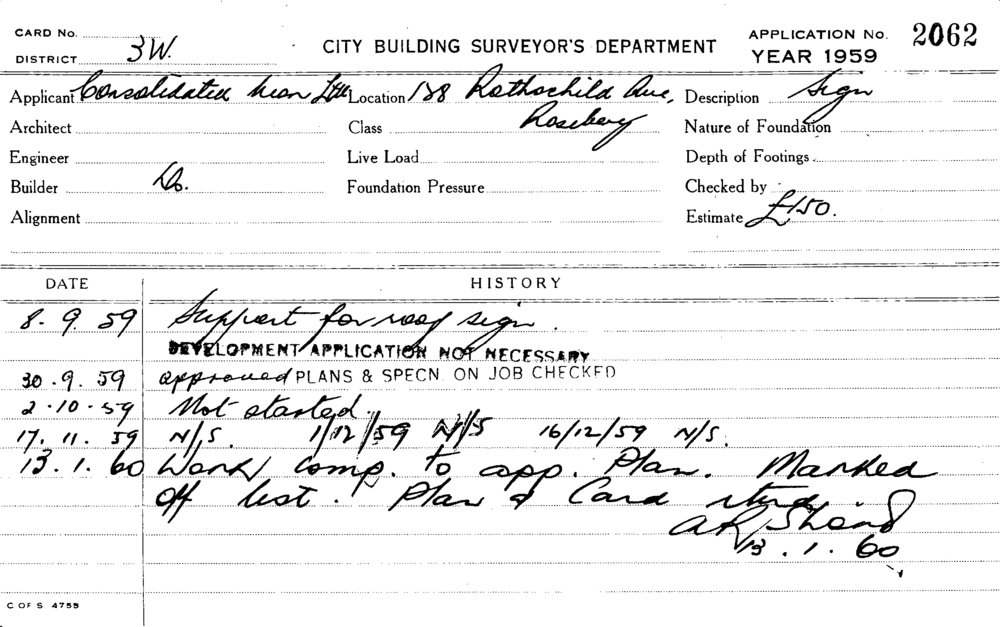 CARD No.
DISTRICT 3W.
CITY BUILDING SURVEYOR'S DEPARTMENT
APPLICATION No. 2062
YEAR 1959
Applicant Consolidated Neon Ltd Location 138 Rothschild Ave, Description Sign
Architect Class Rosebery Nature of Foundation
Engineer Live Load Depth of Footings
Builder Do. Foundation Pressure Checked by
Alignment Estimate £150.
DATE HISTORY
8. 9. 59 Support for roof sign.
DEVELOPMENT APPLICATION NOT NECESSARY
30. 9. 59 approved PLANS & SPECN. ON JOB CHECKED
2. 10. 59 Not started.
17. 11. 59 N/S. 1/12/59 N/S 16/12/59 N/S.
13. 1. 60 Work comp. to app. Plan. Marked
off list. Plan & Card rtnd.
13. 1. 60
C OF S 4755